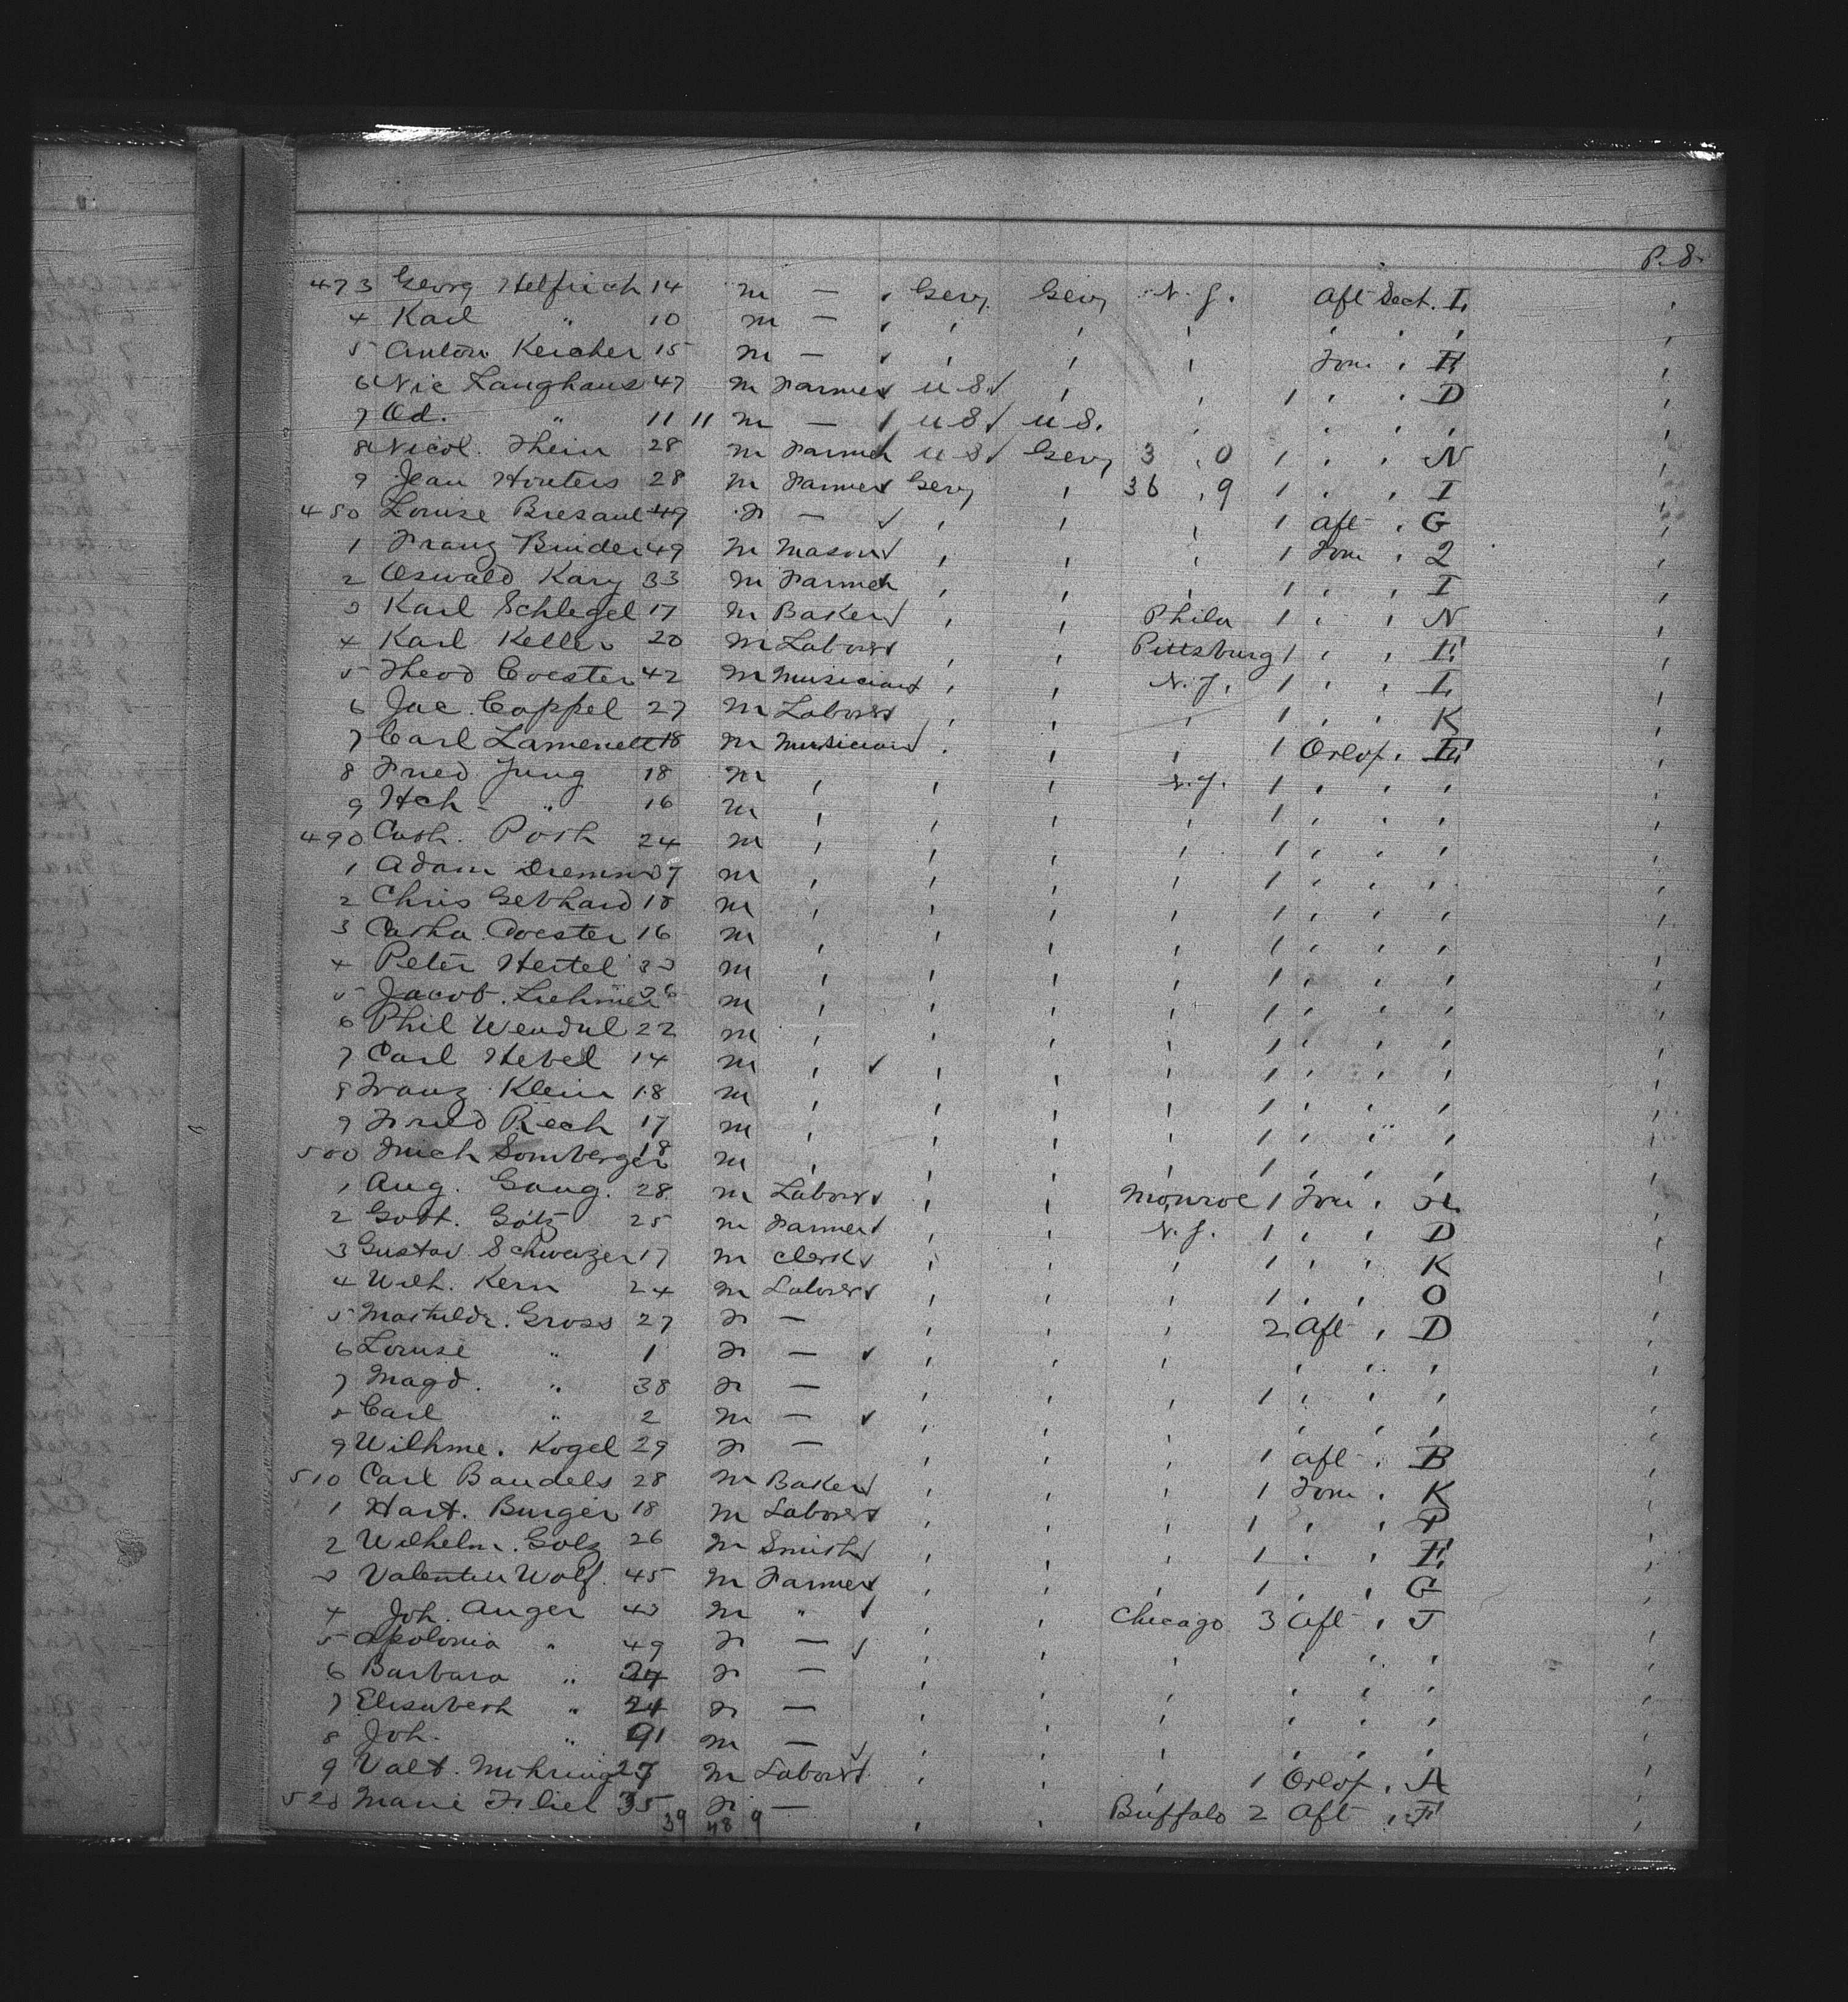 P. 8.
473 Georg Helfrich 14 m — Gery Gery N.Y. Aft Sect. L
4 Karl " 10 m — ' ' ' ' ' '
5 Anton Keicher 15 m — ' ' ' Forw '
6 Nic Langhaus 47 m Farmer U.S. ' ' 1 ' ' D
7 Od. " 11 11 m — U.S. U.S. ' ' ' '
8 Nicol. Thein 28 m Farmer U.S. Gery 3 . 0 1 ' ' N
9 Jean Houters 28 m Farmer Gery ' 36 . 9 1 ' ' I
480 Louise Bresaul 49 F — ' ' ' 1 Aft ' G
1 Franz Binder 49 m Mason ' ' ' 1 Forw ' Q
2 Oswald Kary 33 m Farmer ' ' 1 ' ' I
3 Karl Schlegel 17 m Baker ' ' Phila 1 ' ' N
4 Karl Keller 20 m Laborer ' ' Pittsburg 1 ' ' E
5 Theod Coester 42 m Musician ' ' N.Y. 1 ' ' L
6 Jac. Cappel 27 m Laborer ' ' ' 1 ' ' K
7 Carl 18 m Musician ' ' ' 1 Orlop ' E
8 Fried Jung 18 m ' ' ' N.Y. 1 ' ' '
9 Hch " 16 m ' ' ' ' 1 ' ' '
490 Cath. Poth 24 m ' ' ' ' 1 ' ' '
1 Adam 37 m ' ' ' ' 1 ' ' '
2 Chris Gebhard 18 m ' ' ' ' 1 ' ' '
3 Coester 16 m ' ' ' ' 1 ' ' '
4 Peter Hertel 33 m ' ' ' ' 1 ' ' '
5 Jacob 26 m ' ' ' ' 1 ' ' '
6 Phil Wendul 22 m ' ' ' ' 1 ' ' '
7 Carl Hebel 14 m ' ' ' ' 1 ' ' '
8 Franz Klein 18 m ' ' ' ' 1 ' ' '
9 Fried Rech 17 m ' ' ' ' 1 ' ' '
500 Somberger 18 m ' ' ' ' 1 ' ' '
1 Aug. Gaug. 28 m Laborer ' ' Monroe 1 Forw '
2 Gott. Götz 25 m Farmer ' ' N.Y. 1 ' ' D
3 Gustav Schweizer 17 m Clerk ' ' ' 1 ' ' K
4 Wilh. Kern 24 m Laborer ' ' ' 1 ' ' O
5 Mathilde. Gross 27 F — ' ' ' 2 Aft ' D
6 Louise " 1 F — ' ' ' ' ' '
7 Magd. " 38 F — ' ' ' 1 ' ' '
8 Carl " 2 m — ' ' ' ' ' '
9 Wilhme. Kogel 29 F — ' ' ' 1 Aft ' B
510 Carl Bandels 28 m Baker ' ' ' 1 Forw ' K
1 Hart. Burger 18 m Laborer ' ' ' 1 ' ' P
2 Wilhelm. Golz 26 m Smith ' ' ' 1 ' ' E
3 Valentin Wolf. 45 m Farmer ' ' ' 1 ' ' G
4 Joh. Anger 43 m " ' ' Chicago 3 Aft ' J
5 Apolonia " 49 F — ' ' ' ' ' '
6 Barbara " 24 F — ' ' ' ' ' '
7 Elisabeth " 21 F — ' ' ' ' ' '
8 Joh. " 91 m — ' ' ' ' ' '
9 Valt. Mihring 27 m Laborer ' ' ' 1 Orlop ' A
520 Marie Filiel 35 F — ' ' Buffalo 2 Aft ' F
39 48 9